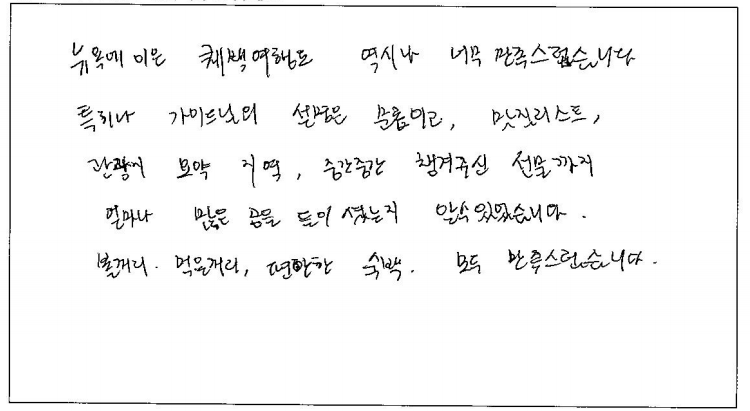 뉴욕에 이은 퀘백여행도 역시나 너무 만족스럽습니다
특히나 가이드님의 설명은 물론이고, 맛집리스트,
관광지 요약 지역, 중간중간 챙겨주신 선물까지
얼마나 많은 공을 들이셨는지 알수있었습니다.
볼거리. 먹을거리, 편안한 숙박. 모두 만족스런습니다.